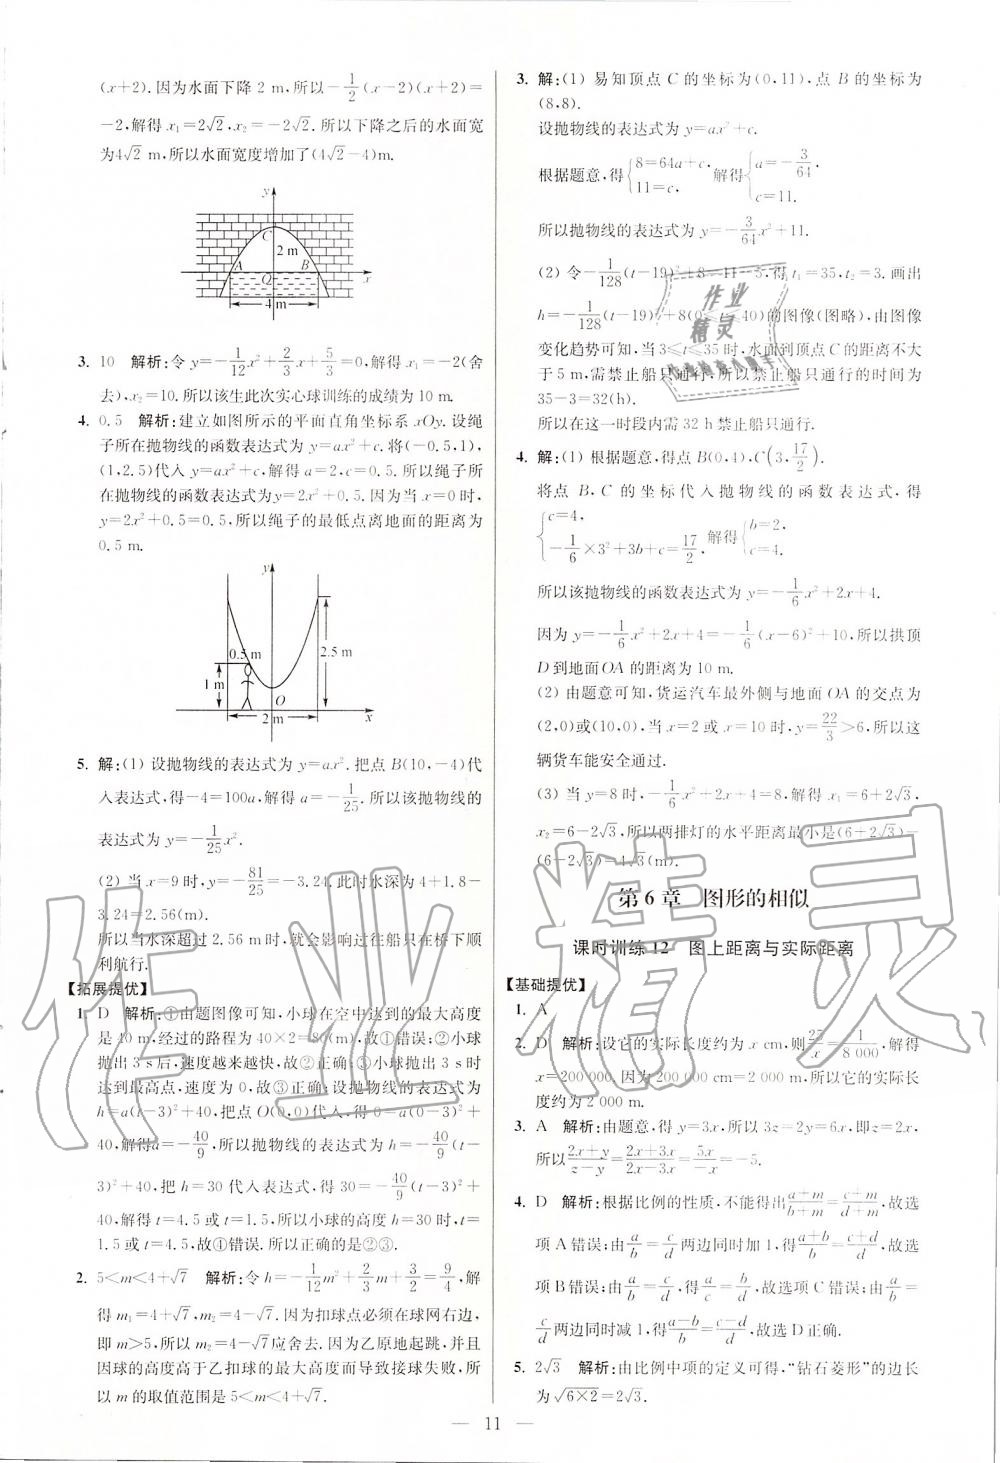 (x+2).因为水面下降 2 m,所以-1/2(x-2)(x+2)=
-2,解得 x₁=2√2,x₂=-2√2.所以下降之后的水面宽
为4√2 m,所以水面宽度增加了(4√2-4)m.
y
C
2 m
A
B
O
x
4 m
3. 10 解析:令 y=-1/12x²+2/3x+5/3=0,解得 x₁=-2(舍
去),x₂=10.所以该生此次实心球训练的成绩为 10 m.
4. 0.5 解析:建立如图所示的平面直角坐标系 xOy.设绳
子所在抛物线的函数表达式为 y=ax²+c.将(-0.5,1),
(1,2.5)代入 y=ax²+c,解得 a=2,c=0.5.所以绳子所
在抛物线的函数表达式为y=2x²+0.5.因为当 x=0时,
y=2x²+0.5=0.5,所以绳子的最低点离地面的距离为
0.5 m.
y
0.5 m
2.5 m
1 m
O
2 m
x
5. 解:(1) 设抛物线的表达式为 y=ax².把点 B(10,-4)代
入表达式,得-4=100a,解得 a=-1/25.所以该抛物线的
表达式为 y=-1/25x².
(2) 当 x=9时,y=-81/25=-3.24.此时水深为 4+1.8-
3.24=2.56(m).
所以当水深超过 2.56 m时,就会影响过往船只在桥下顺
利航行.
【拓展提优】
1. D 解析:①由题图像可知,小球在空中达到的最大高度
是 40 m,经过的路程为 40×2=80(m),故①错误;②小球
抛出 3 s后,速度越来越快,故②正确;③小球抛出 3 s时
达到最高点,速度为 0,故③正确;设抛物线的表达式为
h=a(t-3)²+40,把点 O(0,0)代入,得 0=a(0-3)²+
40,解得a=-40/9,所以抛物线的表达式为 h=-40/9(t-
3)²+40,把 h=30代入表达式,得 30=-40/9(t-3)²+
40,解得 t=4.5或 t=1.5,所以小球的高度 h=30时,t=
1.5或 4.5,故④错误.所以正确的是②③.
2. 5<m<4+√7 解析:令 h=-1/12m²+2/3m+3/2=9/4,解
得 m₁=4+√7,m₂=4-√7.因为扣球点必须在球网右边,
即 m>5,所以 m₂=4-√7应舍去.因为乙原地起跳,并且
因球的高度高于乙扣球的最大高度而导致接球失败,所
以 m 的取值范围是 5<m<4+√7.
3. 解:(1) 易知顶点 C 的坐标为(0,11),点 B 的坐标为
(8,8).
设抛物线的表达式为 y=ax²+c.
根据题意,得{8=64a+c, 11=c, 解得{a=-3/64, c=11.
所以抛物线的表达式为 y=-3/64x²+11.
(2) 令-1/128(t-19)²+8=11-5,得 t₁=35,t₂=3.画出
h=-1/128(t-19)²+8(0≤t≤40)的图像(图略),由图像
变化趋势可知,当 3≤t≤35时,水面到顶点C的距离不大
于 5 m,需禁止船只通行,所以禁止船只通行的时间为
35-3=32(h).
所以在这一时段内需 32 h禁止船只通行.
4. 解:(1) 根据题意,得点 B(0,4),C(3,17/2).
将点 B、C 的坐标代入抛物线的函数表达式,得
{c=4, -1/6×3²+3b+c=17/2, 解得{b=2, c=4.
所以该抛物线的函数表达式为 y=-1/6x²+2x+4.
因为 y=-1/6x²+2x+4=-1/6(x-6)²+10,所以拱顶
D 到地面 OA 的距离为 10 m.
(2) 由题意可知,货运汽车最外侧与地面 OA 的交点为
(2,0)或(10,0),当 x=2或 x=10时,y=22/3>6,所以这
辆货车能安全通过.
(3) 当 y=8时,-1/6x²+2x+4=8,解得 x₁=6+2√3,
x₂=6-2√3,所以两排灯的水平距离最小是(6+2√3)-
(6-2√3)=4√3(m).
第 6 章 图形的相似
课时训练 12 图上距离与实际距离
【基础提优】
1. A
2. D 解析:设它的实际长度约为 x cm,则25/x=1/8 000,解得
x=200 000.因为 200 000 cm=2 000 m,所以它的实际长
度约为 2 000 m.
3. A 解析:由题意,得 y=3x,所以 3z=2y=6x,即z=2x,
所以(2x+y)/(z-y)=(2x+3x)/(2x-3x)=5x/-x=-5.
4. D 解析:根据比例的性质,不能得出(a+m)/(b+m)=(c+m)/(d+m),故选
项A错误;由a/b=c/d两边同时加 1,得(a+b)/b=(c+d)/d,故选
项B错误;由a/b=c/d,得a/c=b/d,故选项 C错误;由a/b=
c/d两边同时减 1,得(a-b)/b=(c-d)/d,故选 D正确.
5. 2√3 解析:由比例中项的定义可得,“钻石菱形”的边长
为√(6×2)=2√3.
— 11 —
作业精灵
作业
精灵